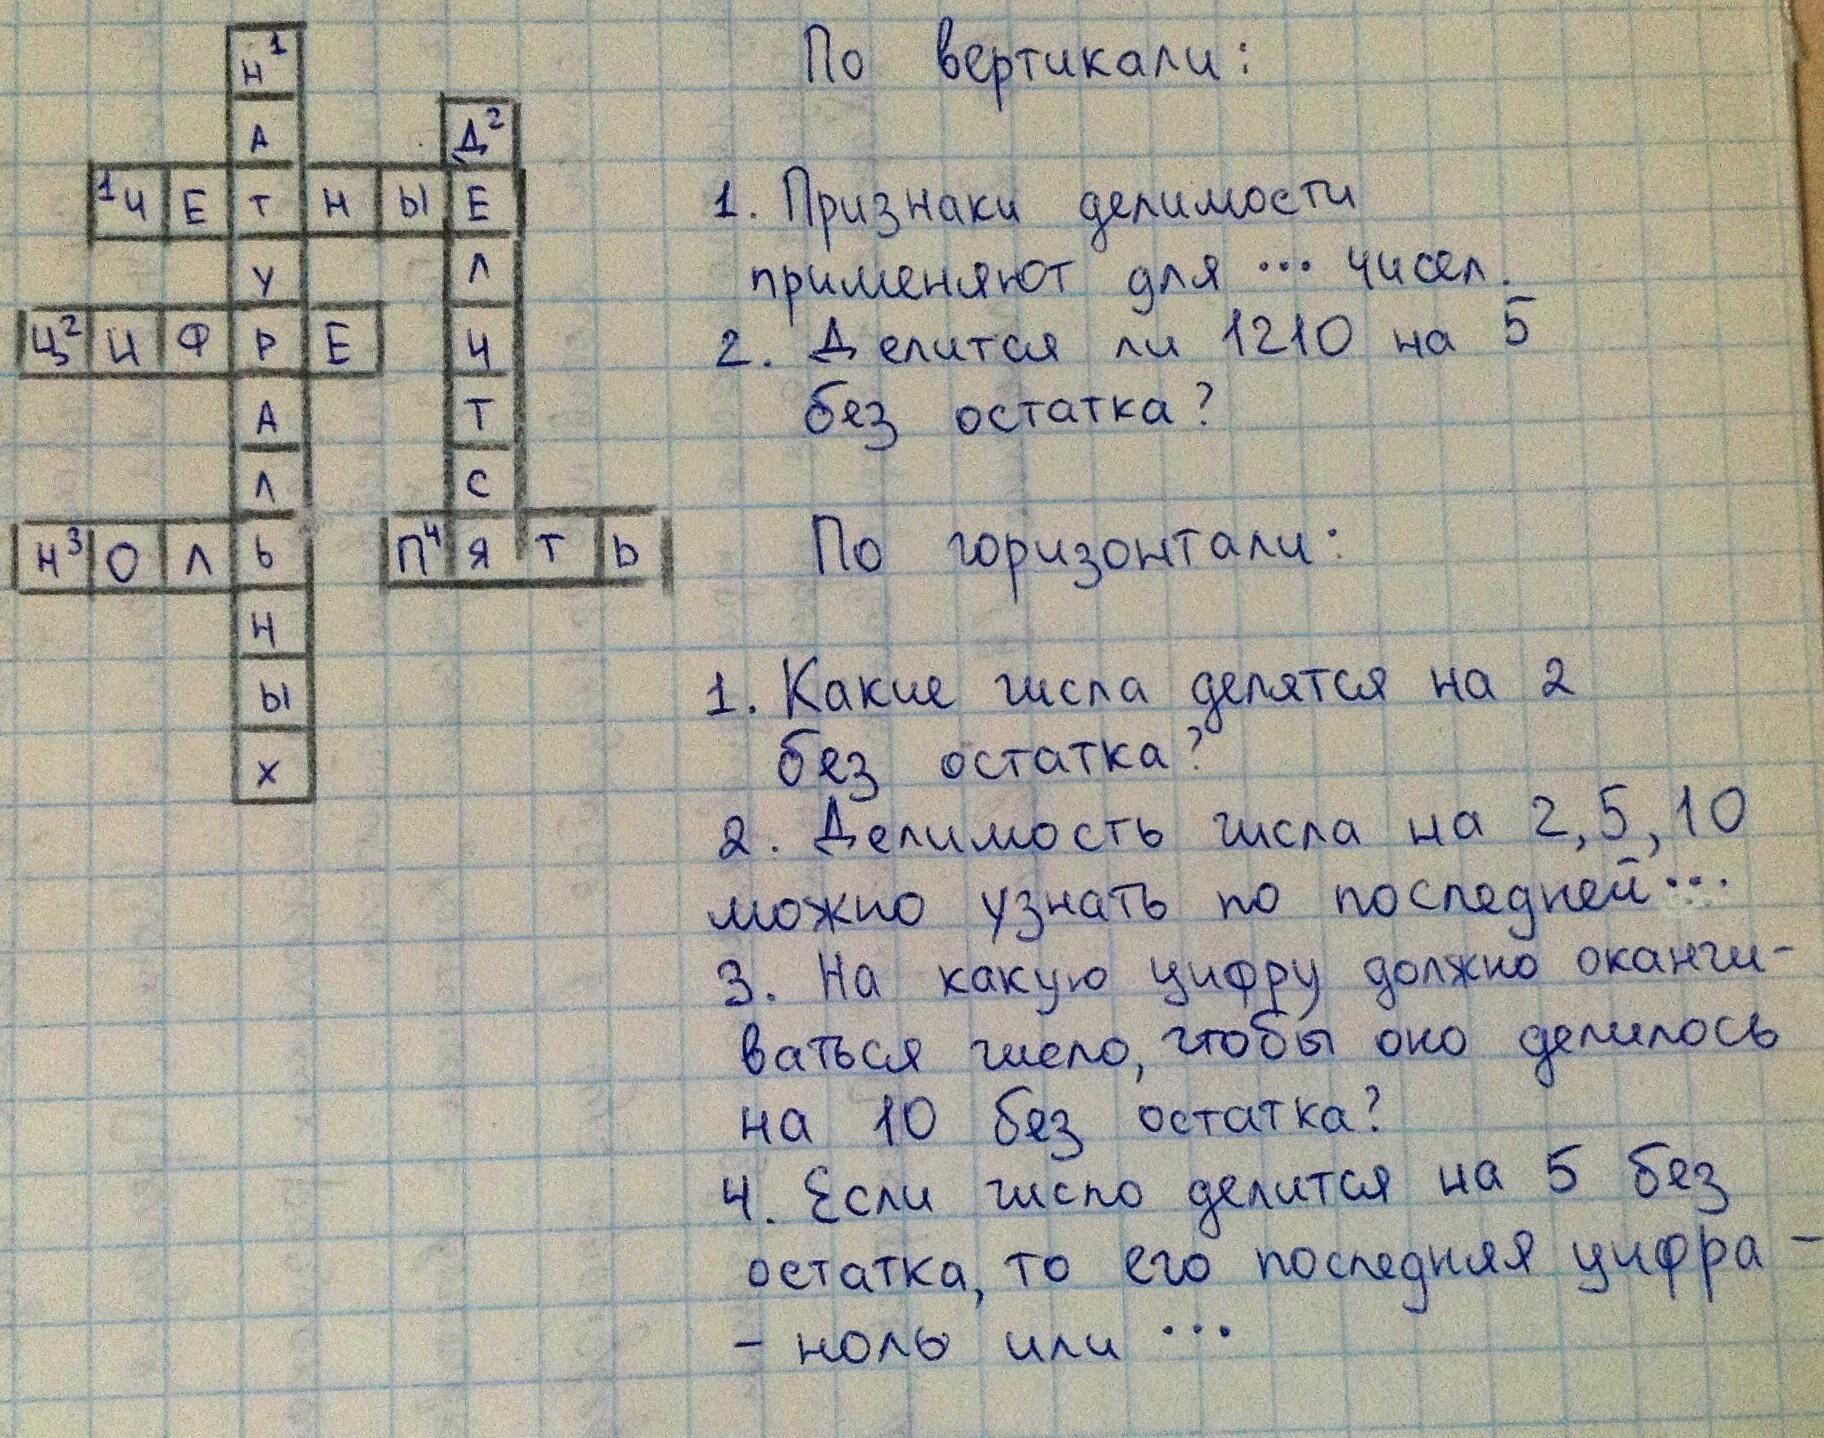 Н 1
А
Д 2
1 Ч Е Т Н Ы Е
У Л
Ц 2 И Ф Р Е И
А Т
Л С
Н 3 О Л Ь П 4 Я Т Ь
Н
Ы
Х
По вертикали:
1. Признаки делимости
применяют для ... чисел.
2. Делится ли 1210 на 5
без остатка?
По горизонтали:
1. Какие числа делятся на 2
без остатка?
2. Делимость числа на 2, 5, 10
можно узнать по последней ...
3. На какую цифру должно оканчи-
ваться число, чтобы оно делилось
на 10 без остатка?
4. Если число делится на 5 без
остатка, то его последняя цифра -
- ноль или ...